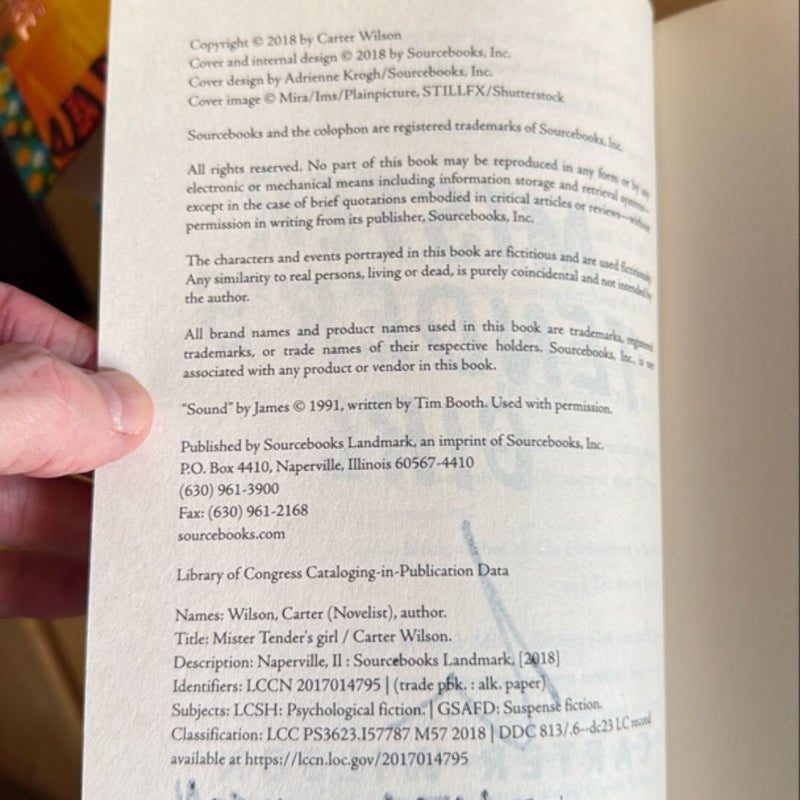 Copyright © 2018 by Carter Wilson
Cover and internal design © 2018 by Sourcebooks, Inc.
Cover design by Adrienne Krogh/Sourcebooks, Inc.
Cover image © Mira/Ims/Plainpicture, STILLFX/Shutterstock
Sourcebooks and the colophon are registered trademarks of Sourcebooks, Inc.
All rights reserved. No part of this book may be reproduced in any form or by any
electronic or mechanical means including information storage and retrieval systems—
except in the case of brief quotations embodied in critical articles or reviews—without
permission in writing from its publisher, Sourcebooks, Inc.
The characters and events portrayed in this book are fictitious and are used fictitiously.
Any similarity to real persons, living or dead, is purely coincidental and not intended by
the author.
All brand names and product names used in this book are trademarks, registered
trademarks, or trade names of their respective holders. Sourcebooks, Inc., is not
associated with any product or vendor in this book.
“Sound” by James © 1991, written by Tim Booth. Used with permission.
Published by Sourcebooks Landmark, an imprint of Sourcebooks, Inc.
P.O. Box 4410, Naperville, Illinois 60567-4410
(630) 961-3900
Fax: (630) 961-2168
sourcebooks.com
Library of Congress Cataloging-in-Publication Data
Names: Wilson, Carter (Novelist), author.
Title: Mister Tender's girl / Carter Wilson.
Description: Naperville, Il : Sourcebooks Landmark, [2018]
Identifiers: LCCN 2017014795 | (trade pbk. : alk. paper)
Subjects: LCSH: Psychological fiction. | GSAFD: Suspense fiction.
Classification: LCC PS3623.I57787 M57 2018 | DDC 813/.6--dc23 LC record
available at https://lccn.loc.gov/2017014795